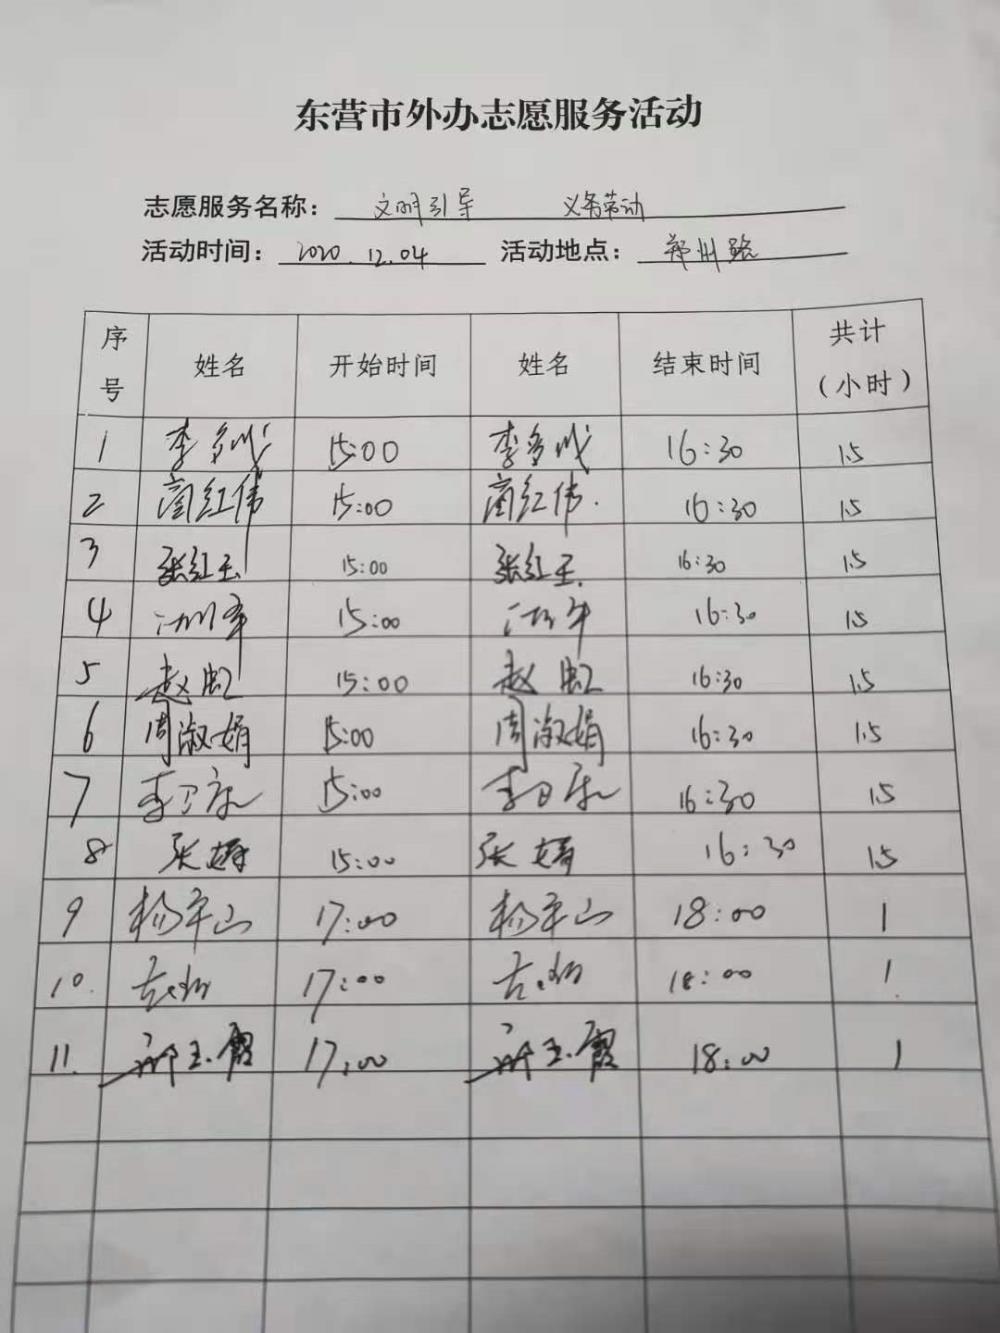 东营市外办志愿服务活动
志愿服务名称： 文明引导 义务劳动
活动时间： 2020.12.04 活动地点： 郑州路
序号 姓名 开始时间 姓名 结束时间 共计（小时）
1 15:00 16:30 1.5
2 15:00 16:30 1.5
3 张红玉 15:00 张红玉 16:30 1.5
4 15:00 16:30 1.5
5 赵虹 15:00 赵虹 16:30 1.5
6 周淑娟 15:00 周淑娟 16:30 1.5
7 15:00 16:30 1.5
8 张婧 15:00 张婧 16:30 1.5
9 杨军山 17:00 杨军山 18:00 1
10. 17:00 18:00 1
11. 玉霞 17:00 玉霞 18:00 1